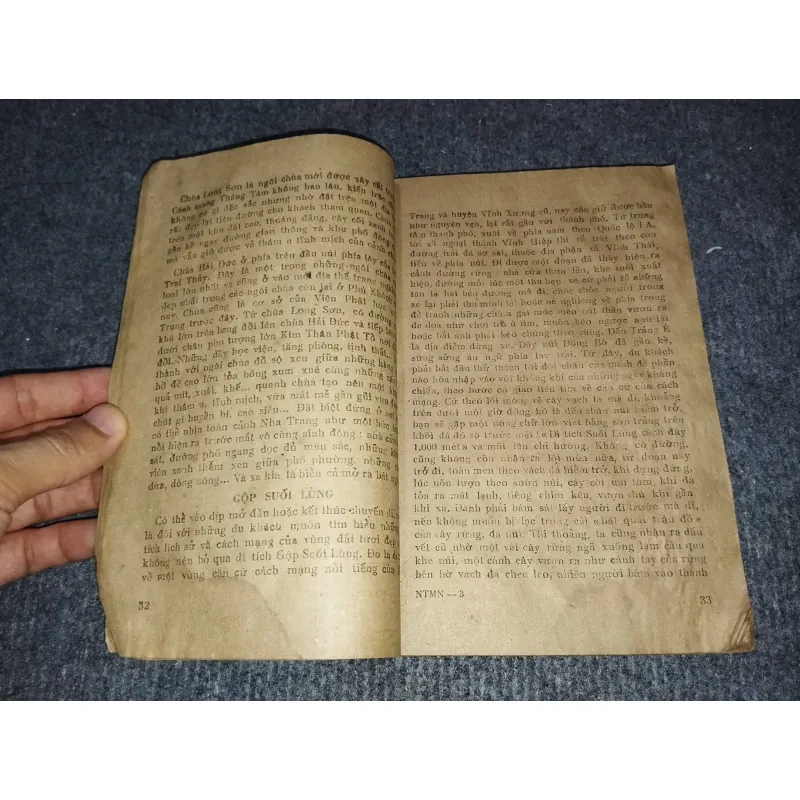 Chùa Long Sơn là ngôi chùa mới được xây cất
Cách mạng Tháng Tám không bao lâu, kiến trúc
không có gì đặc sắc nhưng nhờ đặt trên một
rất đẹp lại tiện đường cho khách tham quan.
trên một khu đất cao, thoáng đãng, cây cối xanh
gần kề ngay đường giao thông và khu phố đông
mà vẫn giữ được vẻ thâm u tĩnh mịch của cảnh
Chùa Hải Đức ở phía trên đầu núi phía tây
Trại Thủy. Đây là một trong những ngôi chùa
loại lớn nhất và cũng ở vào một địa thế trang
đẹp nhất trong các ngôi chùa còn lại ở Phú Khánh
nay. Chùa cũng là cơ sở của Viện Phật học
Trung trước đây. Từ chùa Long Sơn, có đường
khá lớn trên lưng đồi lên chùa Hải Đức và tiếp
dưới chân pho tượng lớn Kim Thân Phật Tổ nơi
đồi. Những dãy học viện, tăng phòng, tịnh thất...
thành với ngôi chùa đồ sộ xen giữa những hàng
bồ đề cao lớn tỏa bóng xum xuê cùng những
quả mít, xoài, khế... quanh chùa tạo nên một
khí thâm u, tĩnh mịch, vừa mát mẻ gần gũi vừa
chút gì huyền bí, cao siêu... Đặt biệt đứng ở
có thể nhìn toàn cảnh Nha Trang như một bức
nổi hiện ra trước mắt vô cùng sinh động : nhà
sát, đường phố ngang dọc đủ màu sắc, những
viên xanh thẫm xen giữa phố phường, những
dừa, dòng sông... Và xa kia là biển cả mở ra bát
GỘP SUỐI LÙNG
Có thể vào dịp mở đầu hoặc kết thúc chuyến
là đối với những du khách muốn tìm hiểu những
tích lịch sử và cách mạng của vùng đất tươi đẹp
không nên bỏ qua di tích Gộp Suối Lùng. Đó là
về một vùng căn cứ cách mạng nổi tiếng của
32
Trang và huyện Vĩnh Xương cũ, nay còn giữ được hầu
như nguyên vẹn, lại rất gần với thành phố. Từ trung
tâm thành phố, xuôi về phía nam theo Quốc lộ 1A,
tới xã ngoại thành Vĩnh Hiệp thì rẽ trái theo con
đường trải đá sơ sài, thuộc địa phận xã Vĩnh Thái,
tiến về phía núi. Đi được một đoạn đã thấy hiện ra
cảnh đường rừng : nhà cửa thưa lần, khe suối xuất
hiện, đường mỗi lúc một thu hẹp xe cứ phải rẽ những
tán lá hai bên đường mà đi, chốc chốc người trong
xe lại phải thu mình lại hoặc né nghiêng về phía trong
để tránh những cành cây gai móc vèo sát thân vươn ra
đe dọa như chơi trò ú tim, muốn kéo ngược anh lại
hoặc bắt anh phải kéo chúng theo cùng. Đến Trảng É
là địa điểm dừng xe. Dãy núi Đồng Bò đã gần kề,
sừng sững án ngữ phía tay trái. Từ đây, du khách
phải bắt đầu thử thách tới đôi chân của mình để phần
nào hòa nhập vào với không khí của những ngày kháng
chiến, theo bước có giao liên tích về căn cứ của cách
mạng. Cứ theo lối mòng rẽ cây vạch lá mà đi, khoảng
trên dưới một giờ đồng hồ là đến chân núi hiểm trở,
bạn sẽ gặp một dòng chữ lớn viết bằng sơn trắng trên
khối đá đồ sộ trước mặt : «Di tích Suối Lùng cách đây
1.000 mét» và mũi tên chỉ hướng. Không có đường,
cũng không còn nhận ra lối mòn nữa, từ đoạn này
trở đi, toàn men theo vách đá hiểm trở, khi dựng đứng,
lúc uốn lượn theo sườn núi, cây cối um tùm, khi đá
tỏa ra mát lạnh, tiếng chim kêu, vượn hú khi gần
khi xa. Đành phải bám sát tay người đi trước mà đi,
nếu không muốn bị lạc trong cái «bát quái trận đồ»
của cây rừng, đá núi. Thỉ thoảng, ta cũng nhận ra dấu
vết cũ nhờ một vài cây rừng ngã xuống làm cầu qua
khe núi, một cánh cây vươn ra như cánh tay của rừng
bên bờ vách đá cheo leo, nhiều người bám vào thành
NTMN — 3
33